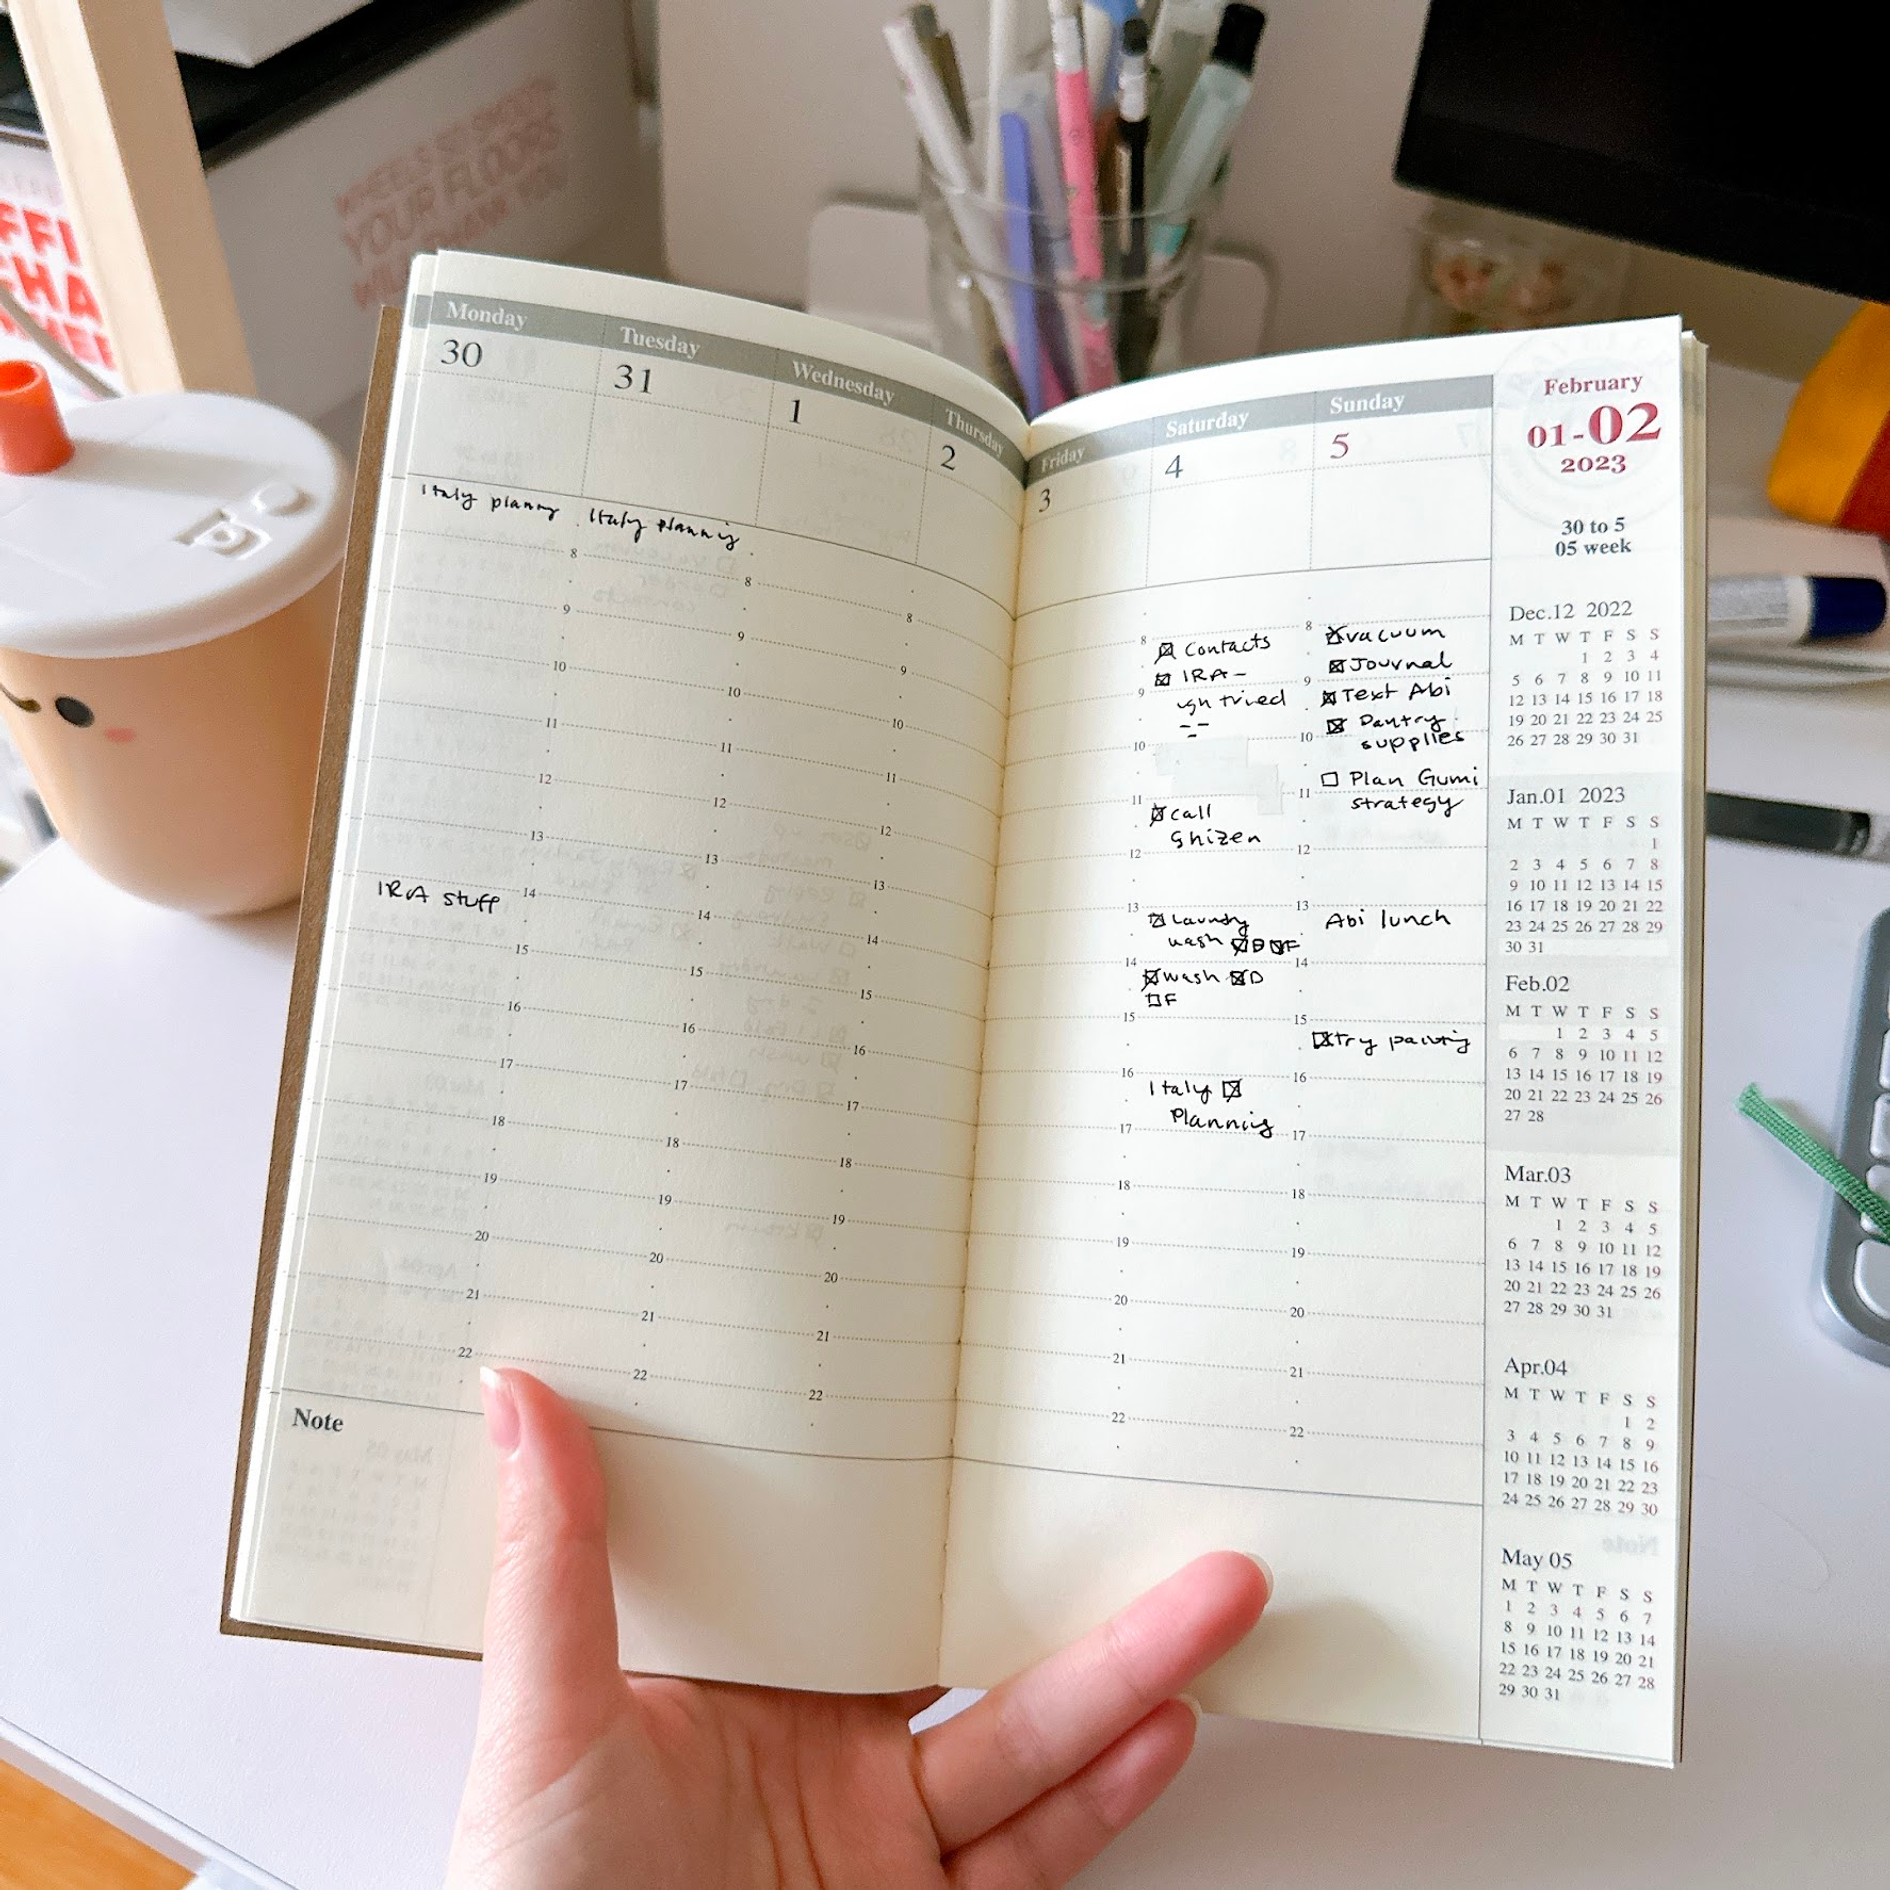 WHEELS SHOOT
YOUR FLOORS
THANK YOU
Monday
30
Tuesday
31
Wednesday
1
Thursday
2
Italy planny
Italy planning
8
9
10
11
12
13
14
15
16
17
18
19
20
21
22
IRA stuff
8
9
10
11
12
13
14
15
16
17
18
19
20
21
22
8
9
10
11
12
13
14
15
16
17
18
19
20
21
22
Note
Friday
3
Saturday
4
Sunday
5
8
9
10
11
12
13
14
15
16
17
18
19
20
21
22
Contacts
IRA -
ugh tried
call
Shizen
Laundry
wash D F
wash D
F
Italy
Planning
8
9
10
11
12
13
14
15
16
17
18
19
20
21
22
vacuum
Journal
Text Abi
Pantry
supplies
Plan Gumi
strategy
Abi lunch
try
February
01-02
2023
30 to 5
05 week
Dec.12 2022
M T W T F S S
1 2 3 4
5 6 7 8 9 10 11
12 13 14 15 16 17 18
19 20 21 22 23 24 25
26 27 28 29 30 31
Jan.01 2023
M T W T F S S
1
2 3 4 5 6 7 8
9 10 11 12 13 14 15
16 17 18 19 20 21 22
23 24 25 26 27 28 29
30 31
Feb.02
M T W T F S S
1 2 3 4 5
6 7 8 9 10 11 12
13 14 15 16 17 18 19
20 21 22 23 24 25 26
27 28
Mar.03
M T W T F S S
1 2 3 4 5
6 7 8 9 10 11 12
13 14 15 16 17 18 19
20 21 22 23 24 25 26
27 28 29 30 31
Apr.04
M T W T F S S
1 2
3 4 5 6 7 8 9
10 11 12 13 14 15 16
17 18 19 20 21 22 23
24 25 26 27 28 29 30
May 05
M T W T F S S
1 2 3 4 5 6 7
8 9 10 11 12 13 14
15 16 17 18 19 20 21
22 23 24 25 26 27 28
29 30 31